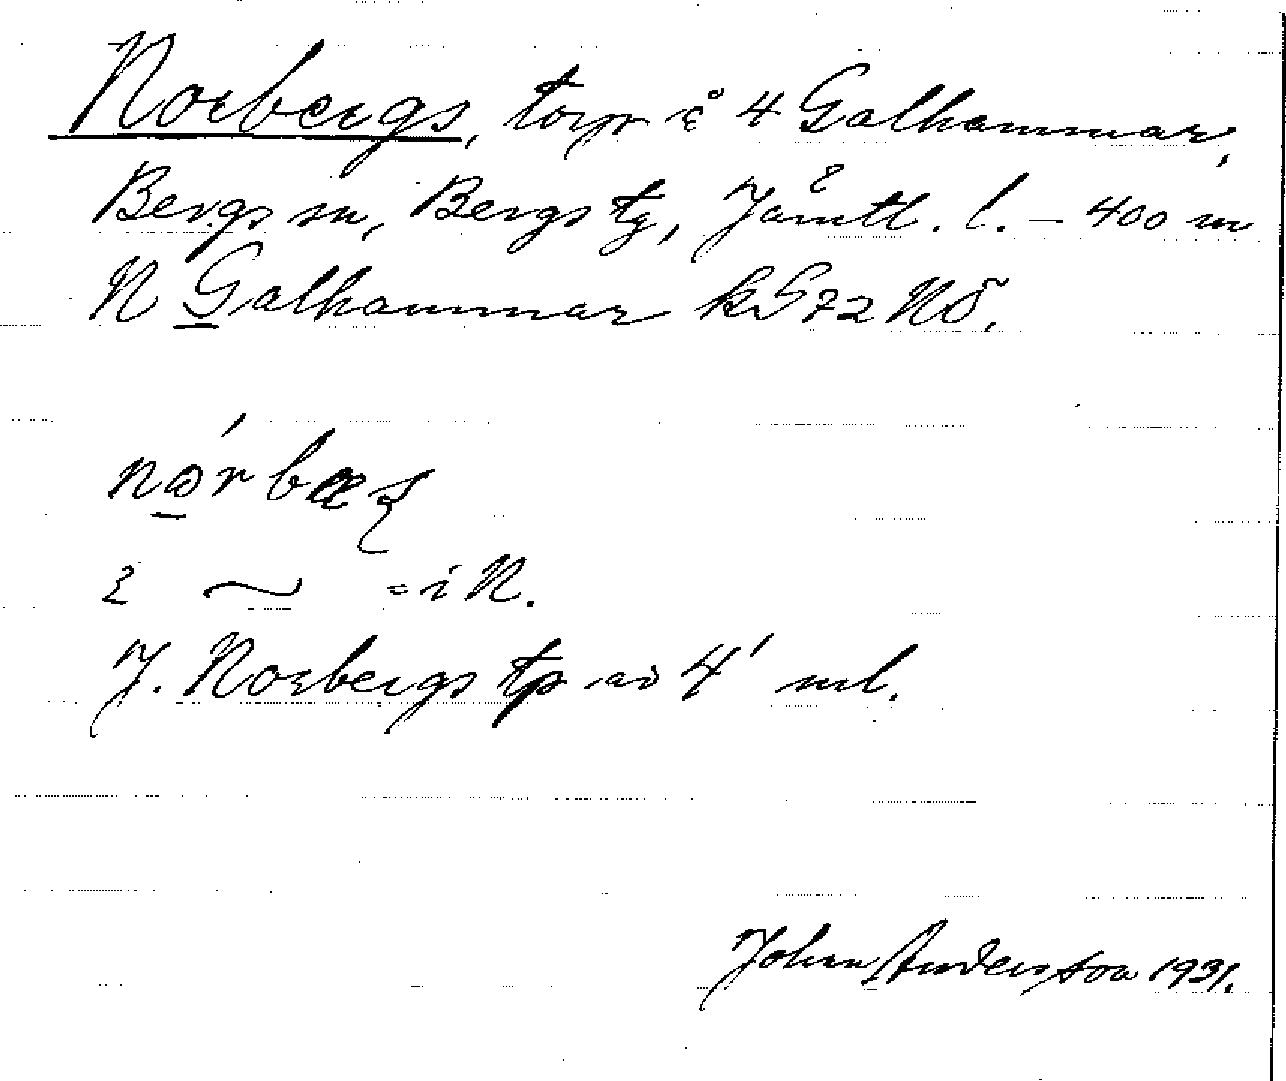 Norbergs, torp å 4 Galhammar,
Bergs sn, Bergs tg, Jämtl. l. – 400 m
N Galhammar kG72 NÖ.
i ~ = i N.
J. Norbergs tp av 4' ml.
John Andersson 1931.